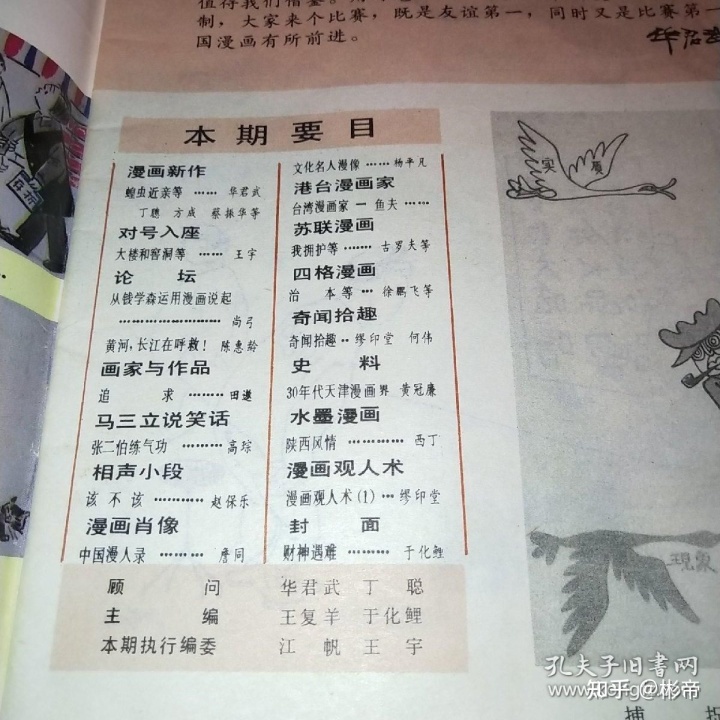 值得我们借鉴。
制，大家来个比赛，既是友谊第一，同时又是比赛第一
国漫画有所前进。
华君武
本期要目
漫画新作
蝗虫近亲等 …… 华君武
丁聪 方成 蔡振华等
对号入座
大楼和窖洞等 …… 王宇
论 坛
从钱学森运用漫画说起
………………… 尚弓
黄河，长江在呼救！ 陈惠龄
画家与作品
追 求 ……… 田遨
马三立说笑话
张二伯练气功 ……… 高琮
相声小段
该不该 ………… 赵保乐
漫画肖像
中国漫人录 ……… 詹同
文化名人漫像 …… 杨平凡
港台漫画家
台湾漫画家一鱼夫 ……
苏联漫画
我拥护等 ……… 古罗夫等
四格漫画
治 本等 … 徐鹏飞等
奇闻拾趣
奇闻拾趣 ‥ 缪印堂 何伟
史 料
30年代天津漫画界 黄冠廉
水墨漫画
陕西风情 ……… 西丁
漫画观人术
漫画观人术(1) … 缪印堂
封 面
财神遇难 ……… 于化鲤
顾 问 华君武 丁 聪
主 编 王复羊 于化鲤
本期执行编委 江 帆 王 宇
实 质
現象
捕
孔夫子旧书网
知乎 @彬帝